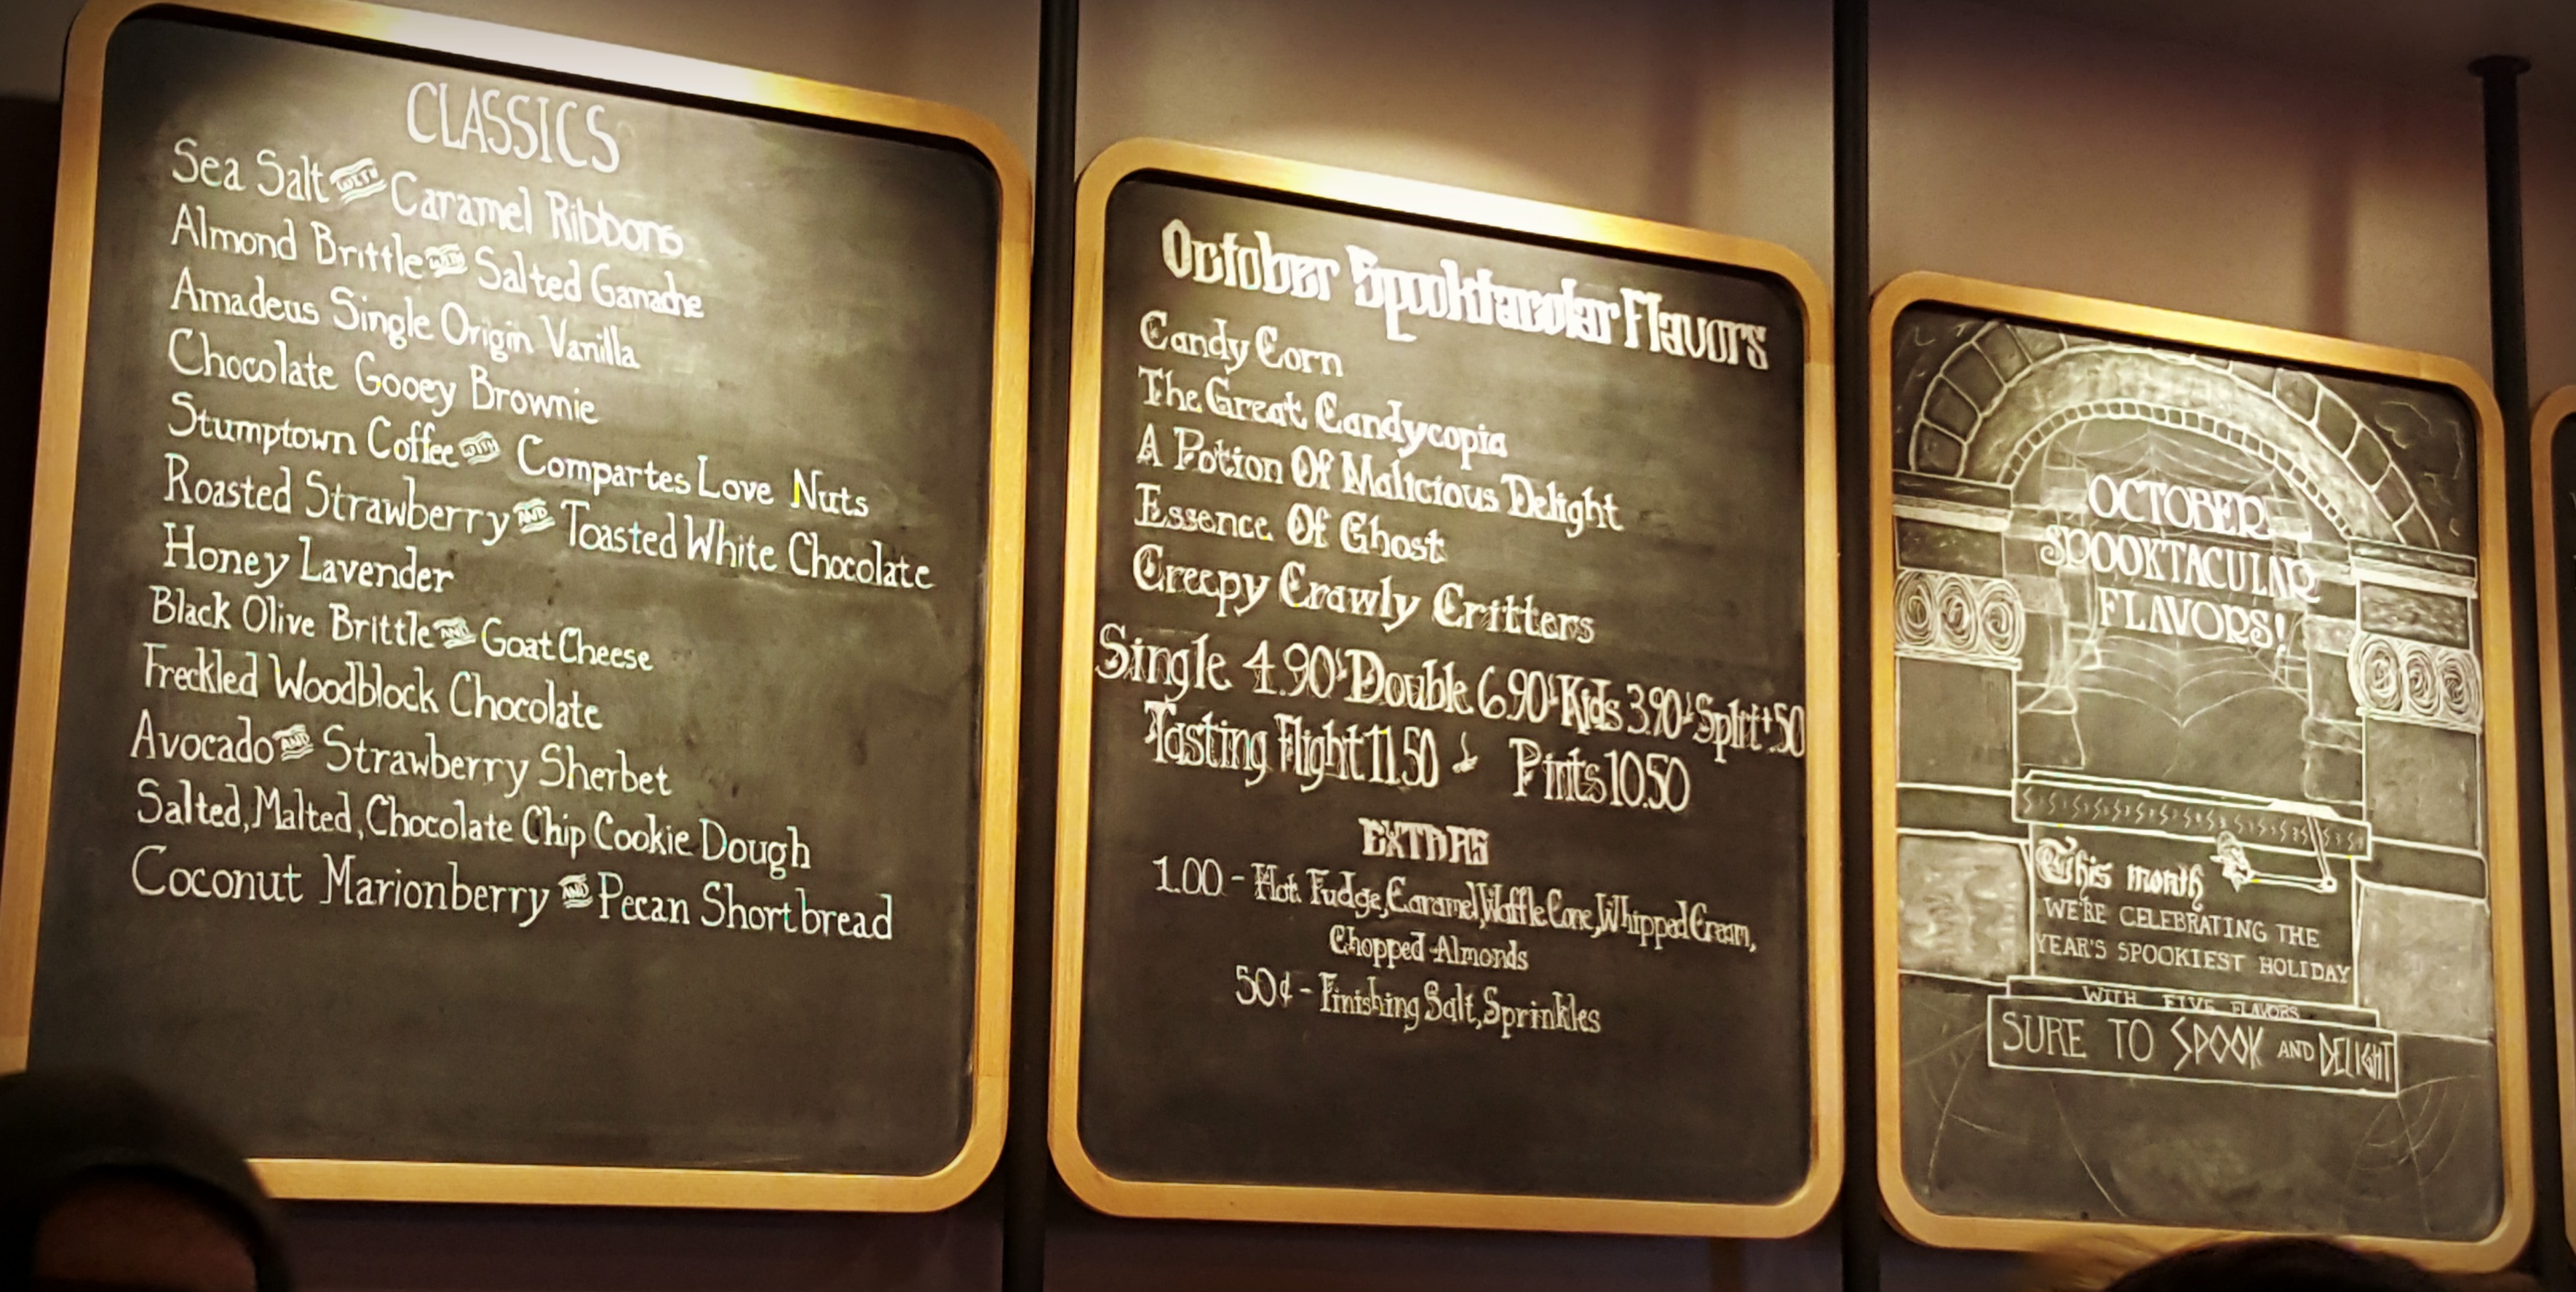 CLASSICS
Sea Salt WITH Caramel Ribbons
Almond Brittle WITH Salted Ganache
Amadeus Single Origin Vanilla
Chocolate Gooey Brownie
Stumptown Coffee WITH Compartes Love Nuts
Roasted Strawberry AND Toasted White Chocolate
Honey Lavender
Black Olive Brittle AND Goat Cheese
Freckled Woodblock Chocolate
Avocado AND Strawberry Sherbet
Salted, Malted, Chocolate Chip Cookie Dough
Coconut Marionberry AND Pecan Shortbread
October Spooktacular Flavors
Candy Corn
The Great Candycopia
A Potion Of Malicious Delight
Essence Of Ghost
Creepy Crawly Critters
Single 4.90 Double 6.90 Kids 3.90 Split +50
Tasting Flight 11.50 Pints 10.50
EXTRAS
1.00 - Hot Fudge, Caramel, Waffle Cone, Whipped Cream,
Chopped Almonds
50¢ - Finishing Salt, Sprinkles
OCTOBER
SPOOKTACULAR
FLAVORS!
This month
WE'RE CELEBRATING THE
YEAR'S SPOOKIEST HOLIDAY
WITH FIVE FLAVORS
SURE TO SPOOK AND DELIGHT